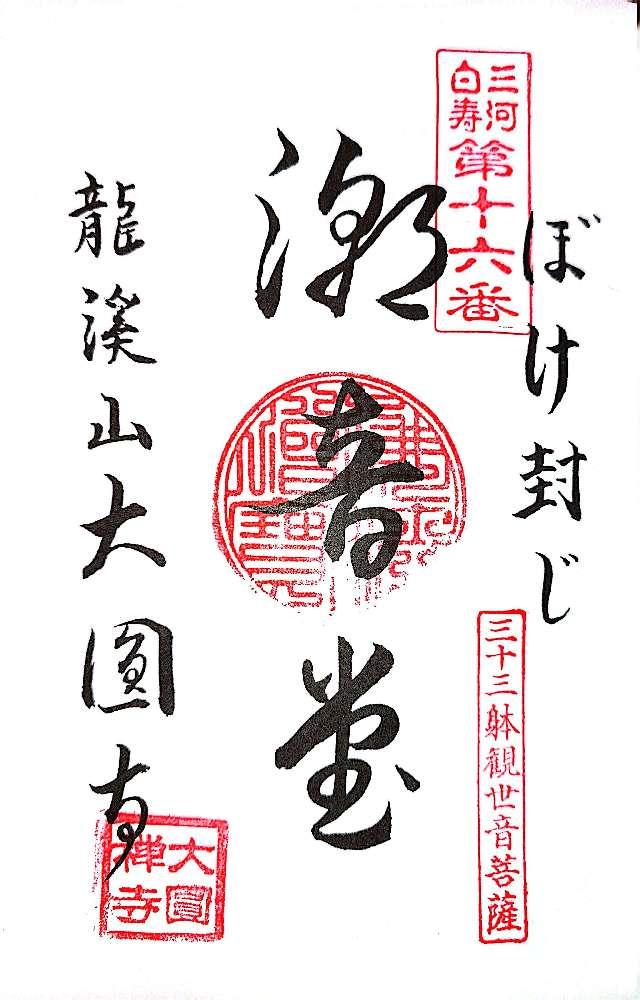 三河
白寿
第十六番
ぼけ封じ
三十三躰観世音菩薩
潮音堂
龍溪山大圓寺
大圓
禅寺